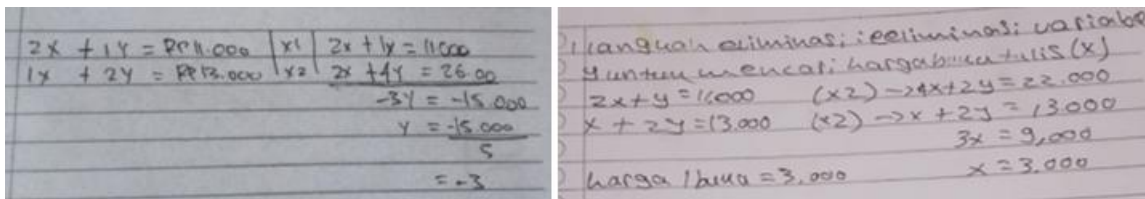 2x + 1y = Rp 11.000 | x1 | 2x + 1y = 11000
1x + 2y = Rp 13.000 | x2 | 2x + 4y = 26.00
-3y = -15.000
y = -15.000
5
= -3
langkah eliminasi : eeliminasi variabe
y untuk mencari harga buku tulis (x)
2x + y = 11000 (x2) → 4x + 2y = 22.000
x + 2y = 13.000 (x2) → x + 2y = 13000
3x = 9,000
harga 1 buku = 3.000 x = 3.000